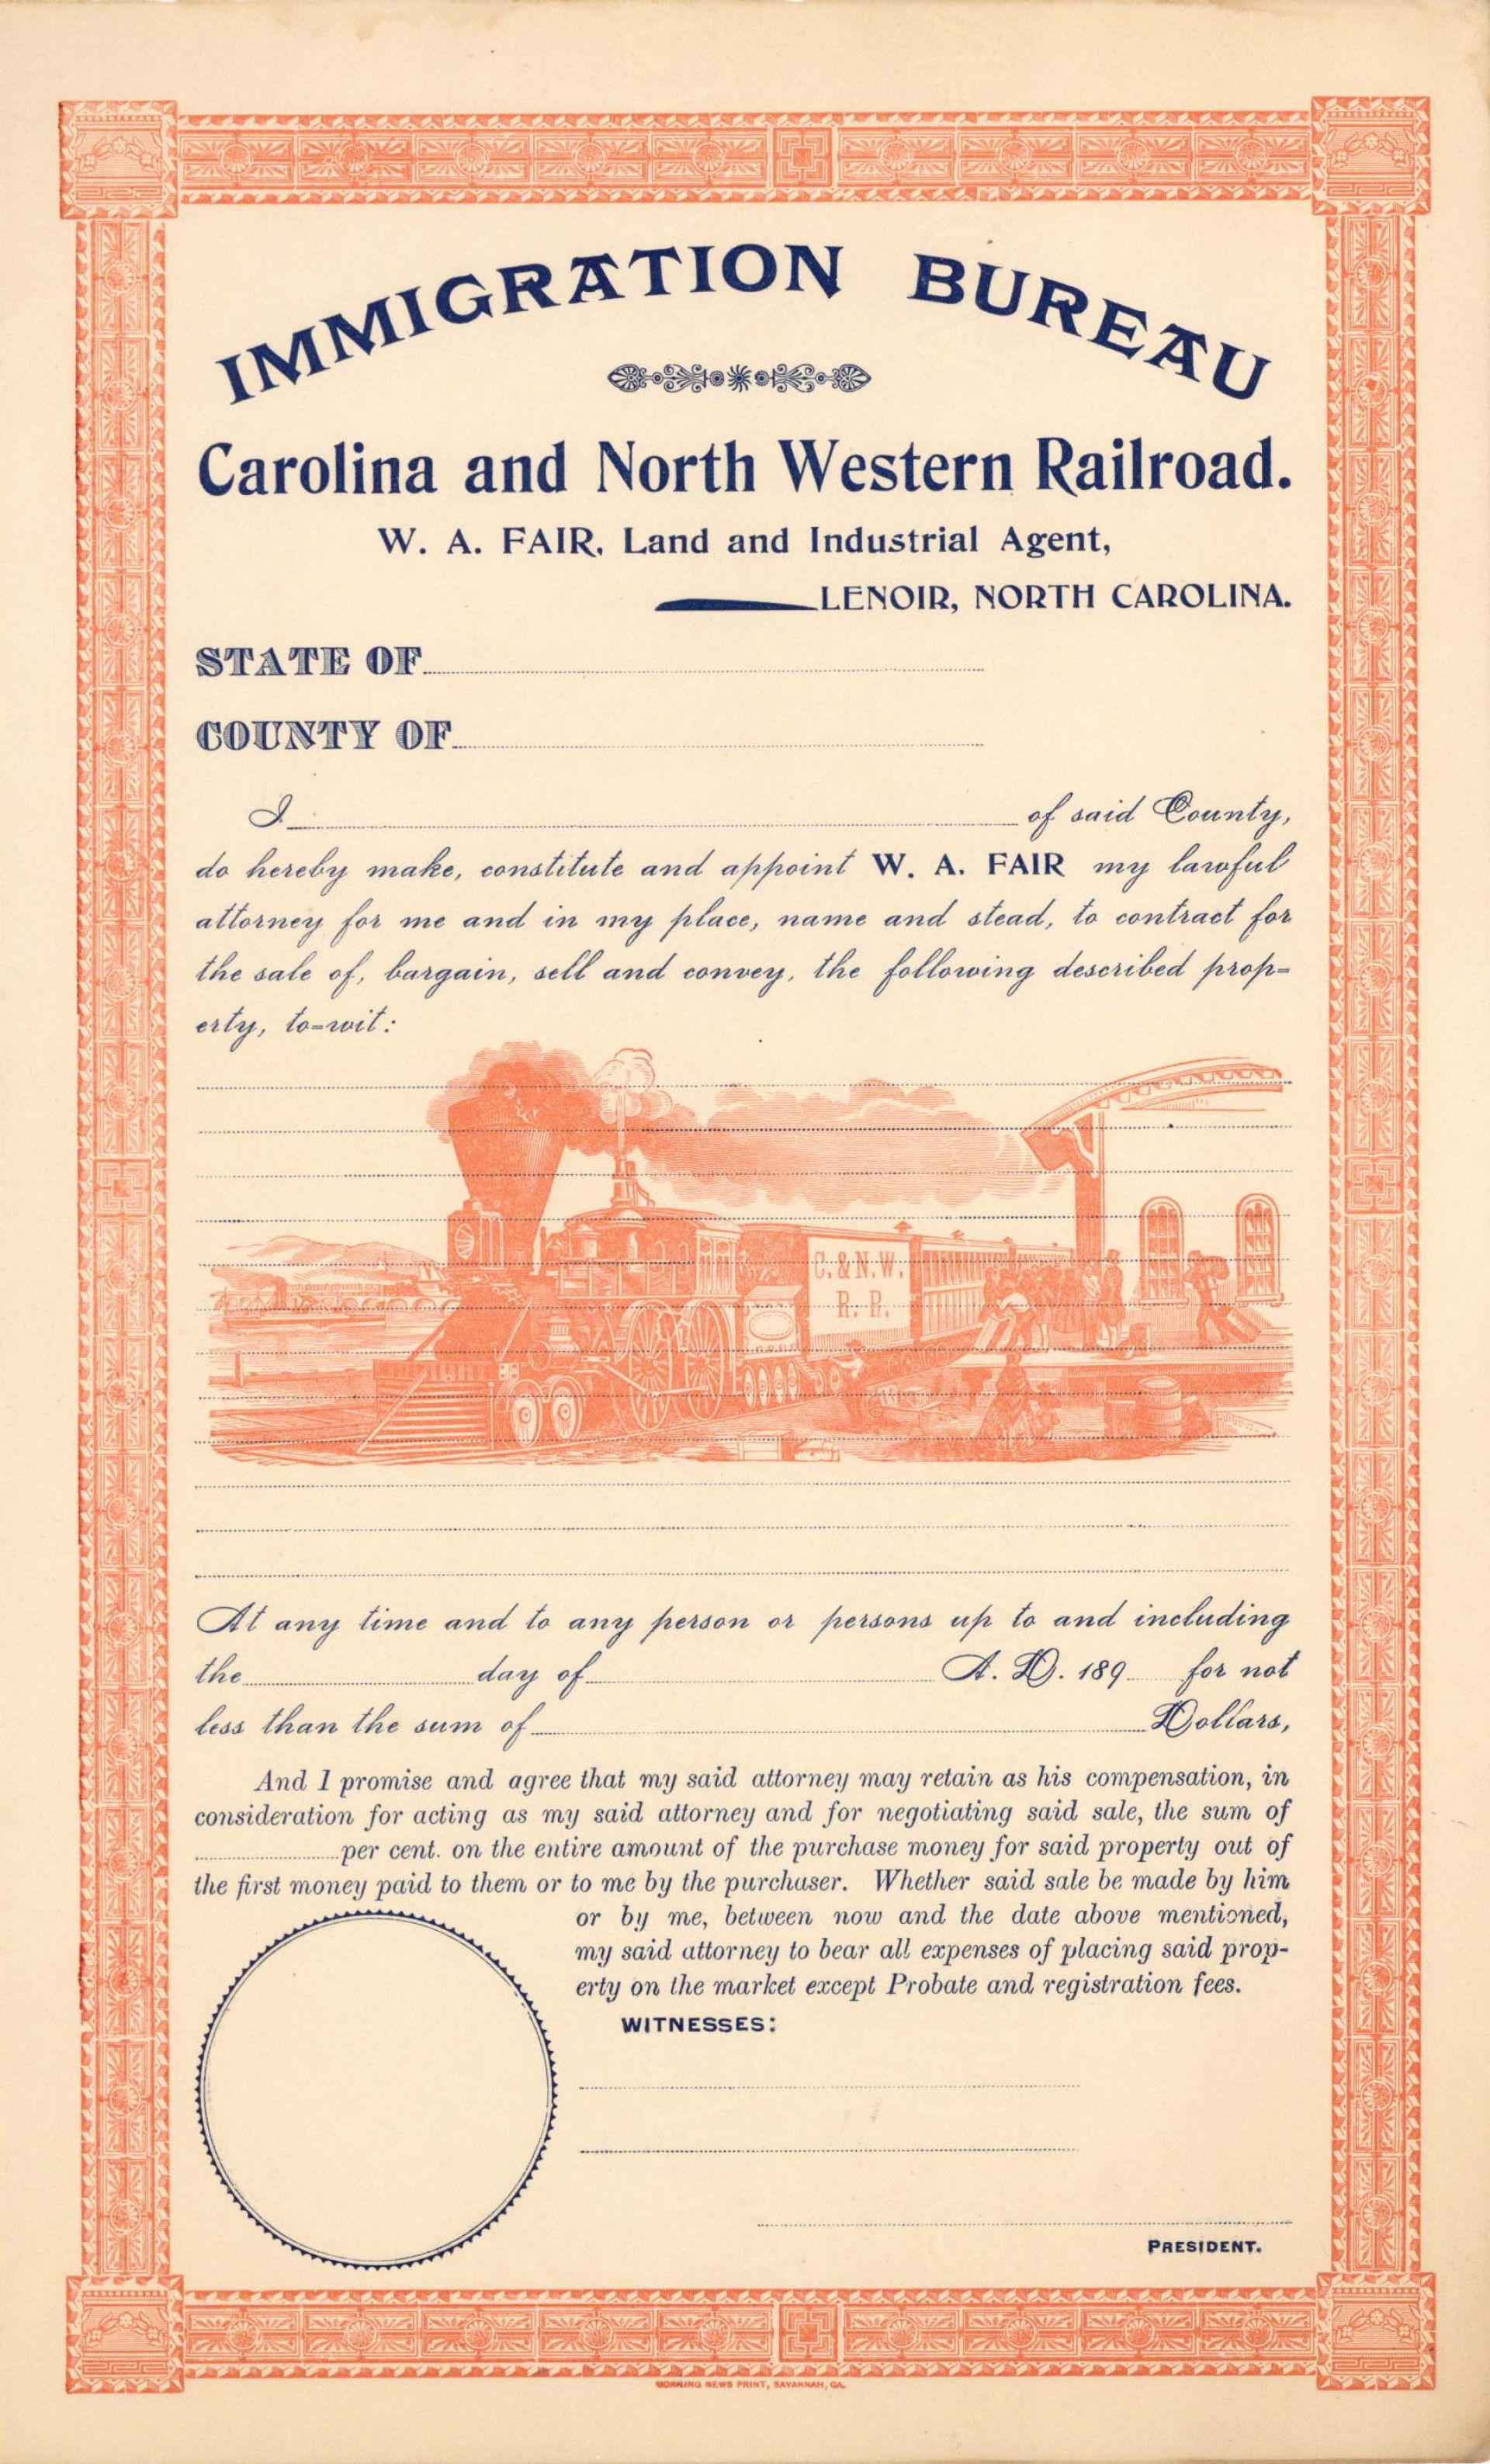 IMMIGRATION BUREAU
Carolina and North Western Railroad.
W. A. FAIR, Land and Industrial Agent,
LENOIR, NORTH CAROLINA.
STATE OF
COUNTY OF
I of said County,
do hereby make, constitute and appoint W. A. FAIR my lawful
attorney for me and in my place, name and stead, to contract for
the sale of, bargain, sell and convey, the following described prop-
erty, to-wit:
C. & N. W.
R. R.
At any time and to any person or persons up to and including
the day of A. D. 189 for not
less than the sum of Dollars,
And I promise and agree that my said attorney may retain as his compensation, in
consideration for acting as my said attorney and for negotiating said sale, the sum of
per cent. on the entire amount of the purchase money for said property out of
the first money paid to them or to me by the purchaser. Whether said sale be made by him
or by me, between now and the date above mentioned,
my said attorney to bear all expenses of placing said prop-
erty on the market except Probate and registration fees.
WITNESSES:
PRESIDENT.
MORNING NEWS PRINT, SAVANNAH, GA.